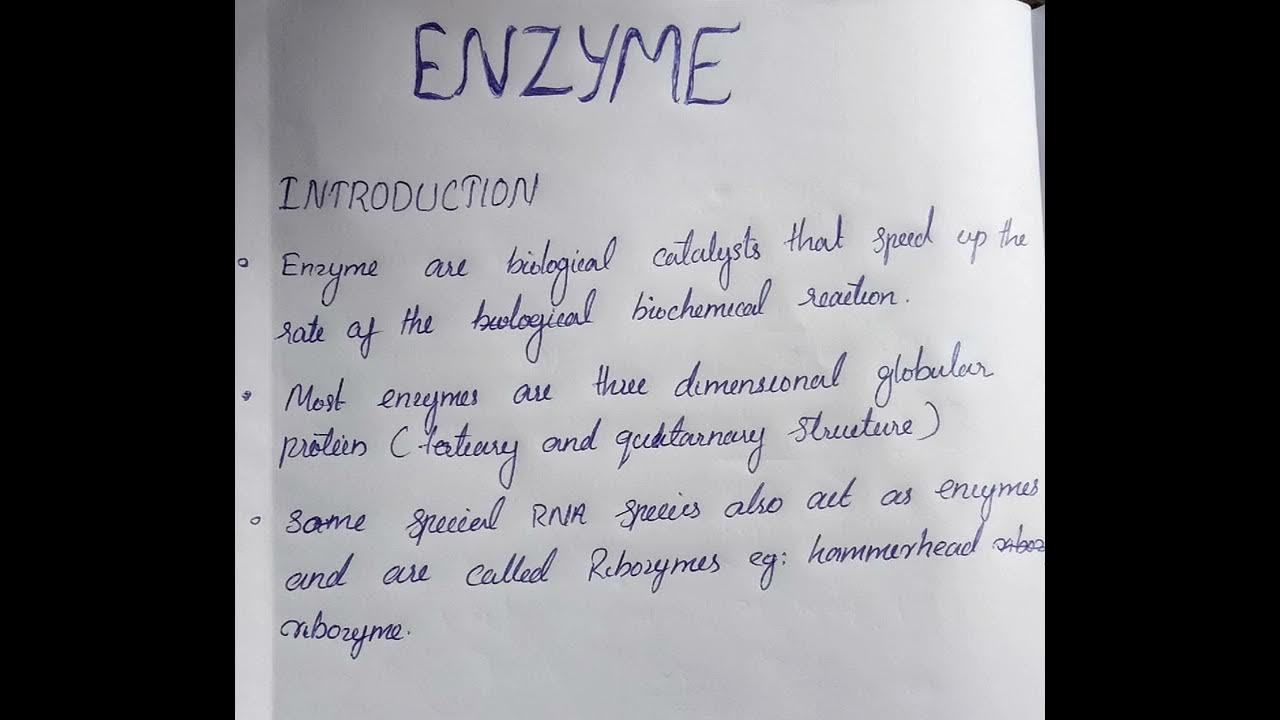 ENZYME
INTRODUCTION
Enzyme are biological catalysts that speed up the
rate of the biological biochemical reaction.
Most enzymes are three dimensional globular
protein (tertiary and quatarnary structure)
Some special RNA species also act as enzymes
and are called Ribozymes eg: hammerhead
ribozyme.